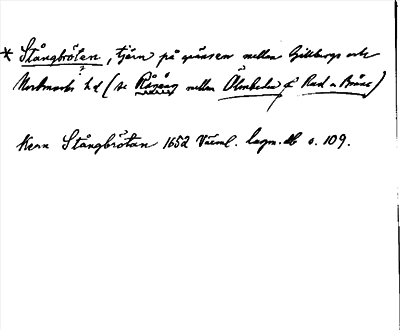 * Stångbrötan, tjärn på gränsen mellan Gillbergs och
Nordmarks hd (se Rågång mellan Ölmhedm & Rud o Bräns)
Kern Stångbrötan 1652 Värml. lagm.db s. 109.